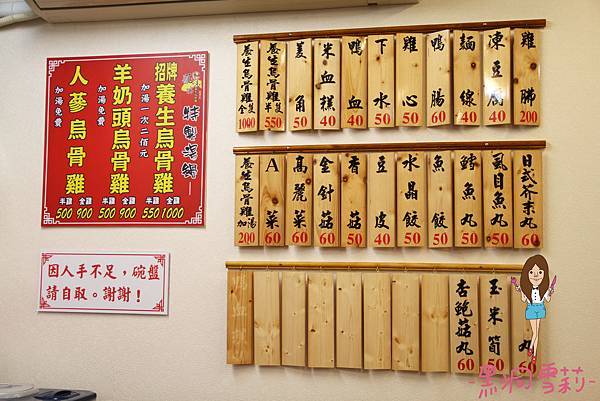 特製湯鍋
招牌養生烏骨雞
加湯一次二佰元
半雞 全雞
550 1000
羊奶頭烏骨雞
加湯免費
半雞 全雞
500 900
人蔘烏骨雞
加湯免費
半雞 全雞
500 900
因人手不足，碗盤
請自取。謝謝！
養生烏骨雞全隻 1000
養生烏骨雞半隻 550
美角 50
米血糕 40
鴨血 40
下水 50
雞心 50
鴨腸 60
麵線 40
凍豆腐 40
雞腳 200
養生烏骨雞加湯 200
A菜 60
高麗菜 60
金針菇 60
香菇 50
豆皮 40
水晶餃 50
魚餃 50
鱈魚丸 50
虱目魚丸 50
日式芥末丸 60
杏鮑菇丸 60
玉米筍 50
丸 60
-黑米雪莉-